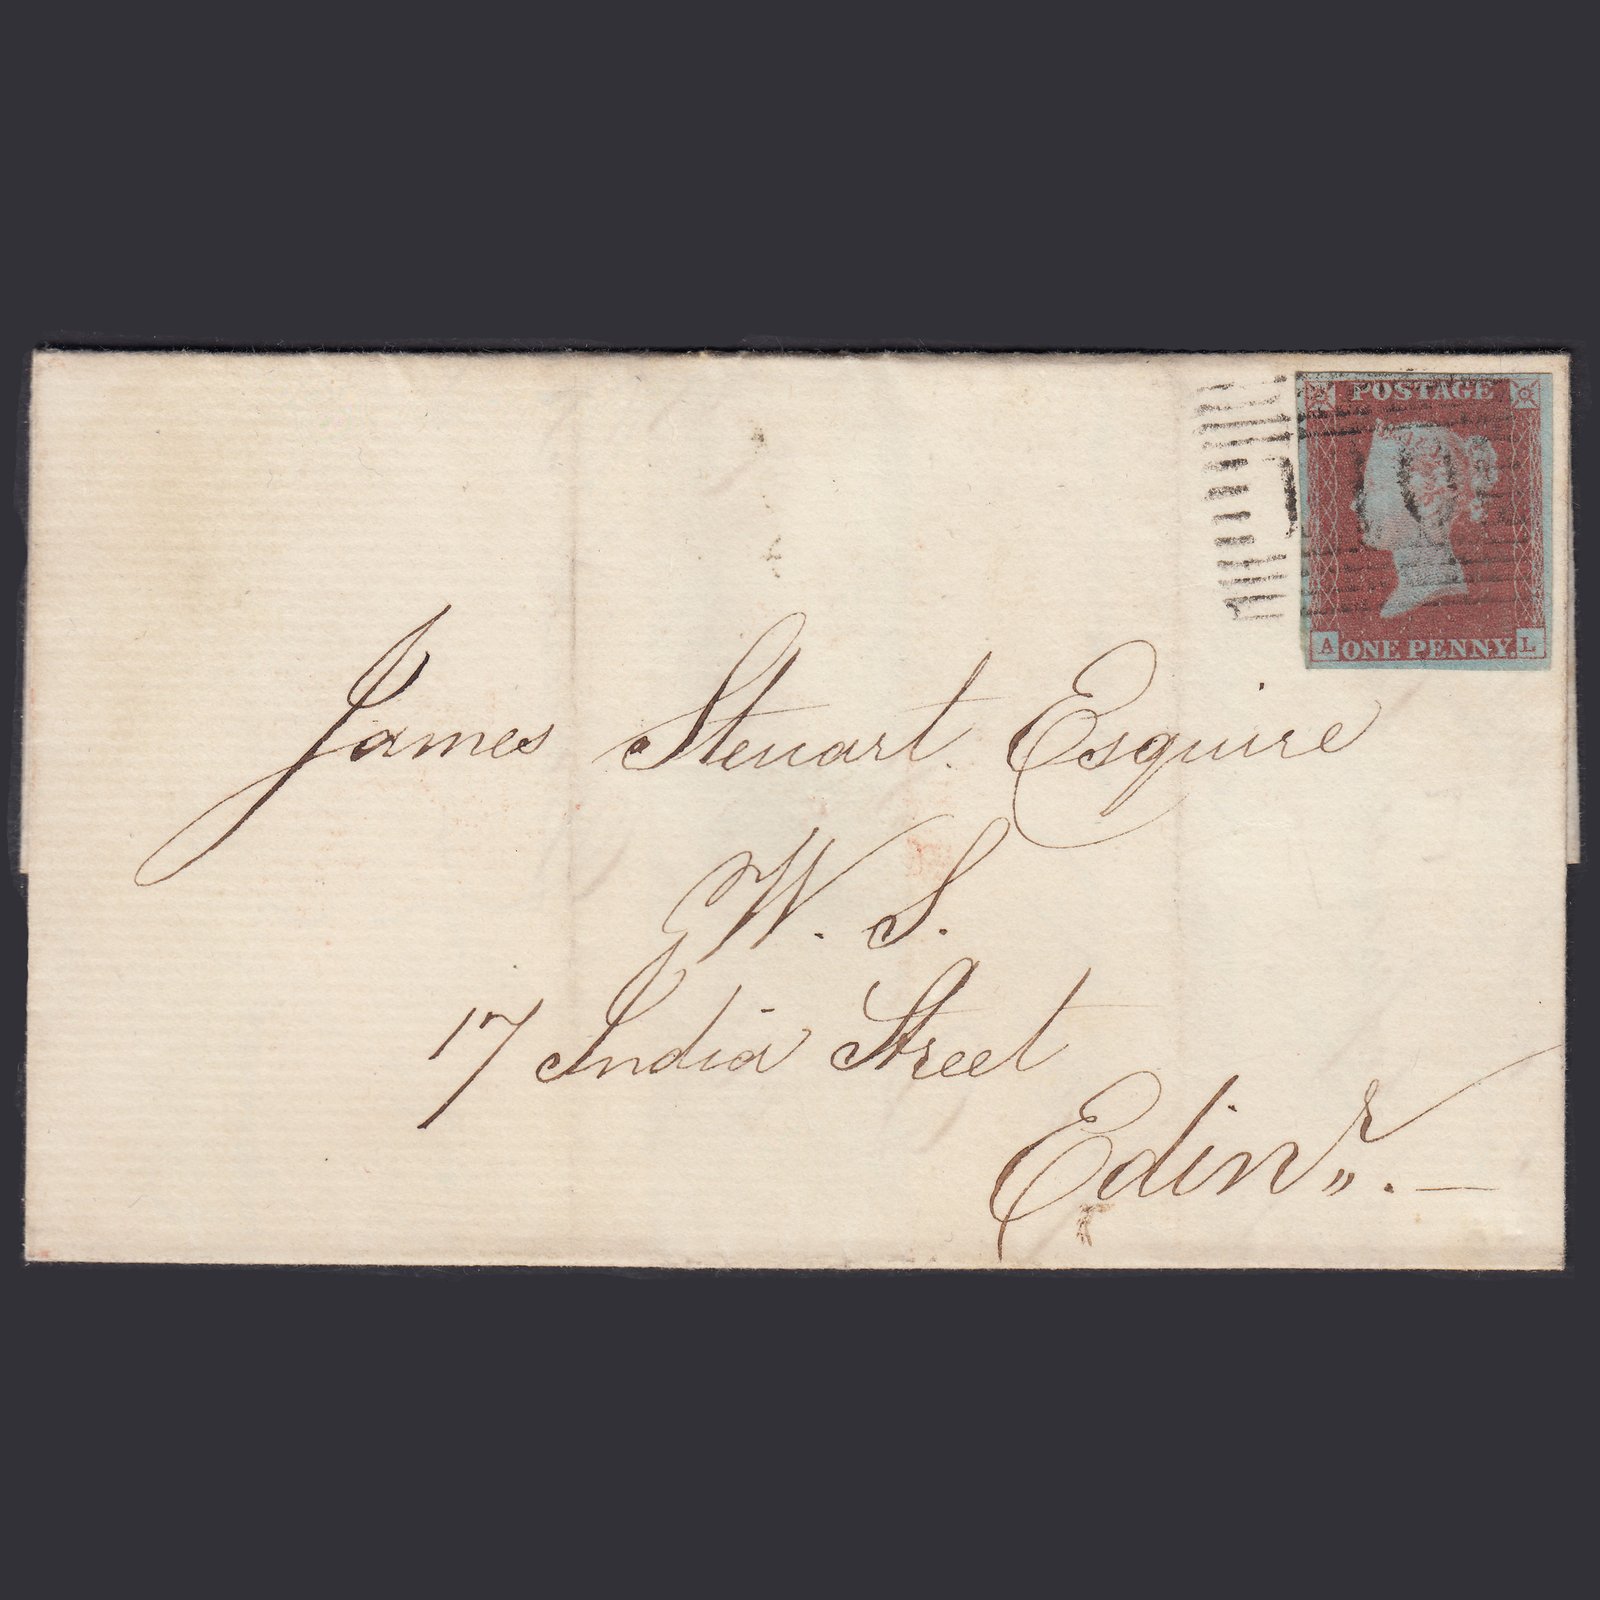 POSTAGE
A ONE PENNY. L
James Steuart. Esquire
W. S.
17 India Street
Edinr.. —